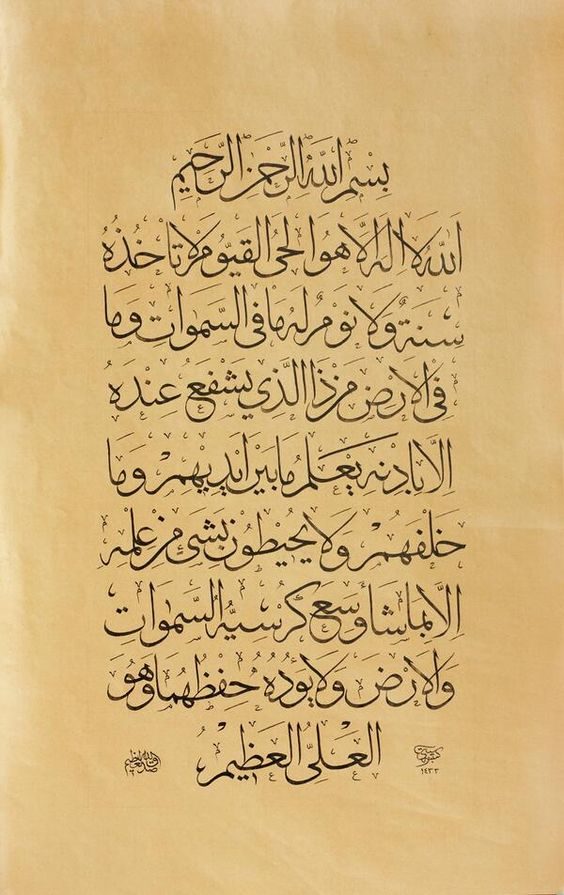 بِسْمِ اللّٰهِ الرَّحْمٰنِ الرَّحِيمِ
اَللّٰهُ لَا اِلٰهَ اِلَّا هُوَ الْحَيُّ الْقَيُّومُ لَا تَأْخُذُهُ
سِنَةٌ وَلَا نَوْمٌ لَهُ مَا فِي السَّمٰوَاتِ وَمَا
فِي الْاَرْضِ مَنْ ذَا الَّذِي يَشْفَعُ عِنْدَهُ
اِلَّا بِاِذْنِهِ يَعْلَمُ مَا بَيْنَ اَيْدِيهِمْ وَمَا
خَلْفَهُمْ وَلَا يُحِيطُونَ بِشَيْءٍ مِنْ عِلْمِهِ
اِلَّا بِمَا شَاءَ وَسِعَ كُرْسِيُّهُ السَّمٰوَاتِ
وَالْاَرْضَ وَلَا يَؤُدُهُ حِفْظُهُمَا وَهُوَ
الْعَلِيُّ الْعَظِيمُ
صدق الله العظيم
١٤٣٢